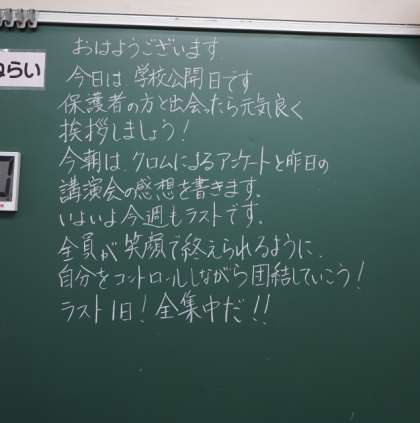 おはようございます。
ねらい
今日は、学校公開日です
保護者の方と出会ったら元気良く
挨拶しましょう！
今朝は、クロムによるアンケートと昨日の
講演会の感想を書きます。
いよいよ今週もラストです。
全員が笑顔で終えられるように、
自分をコントロールしながら団結していこう！
ラスト1日！全集中だ！！